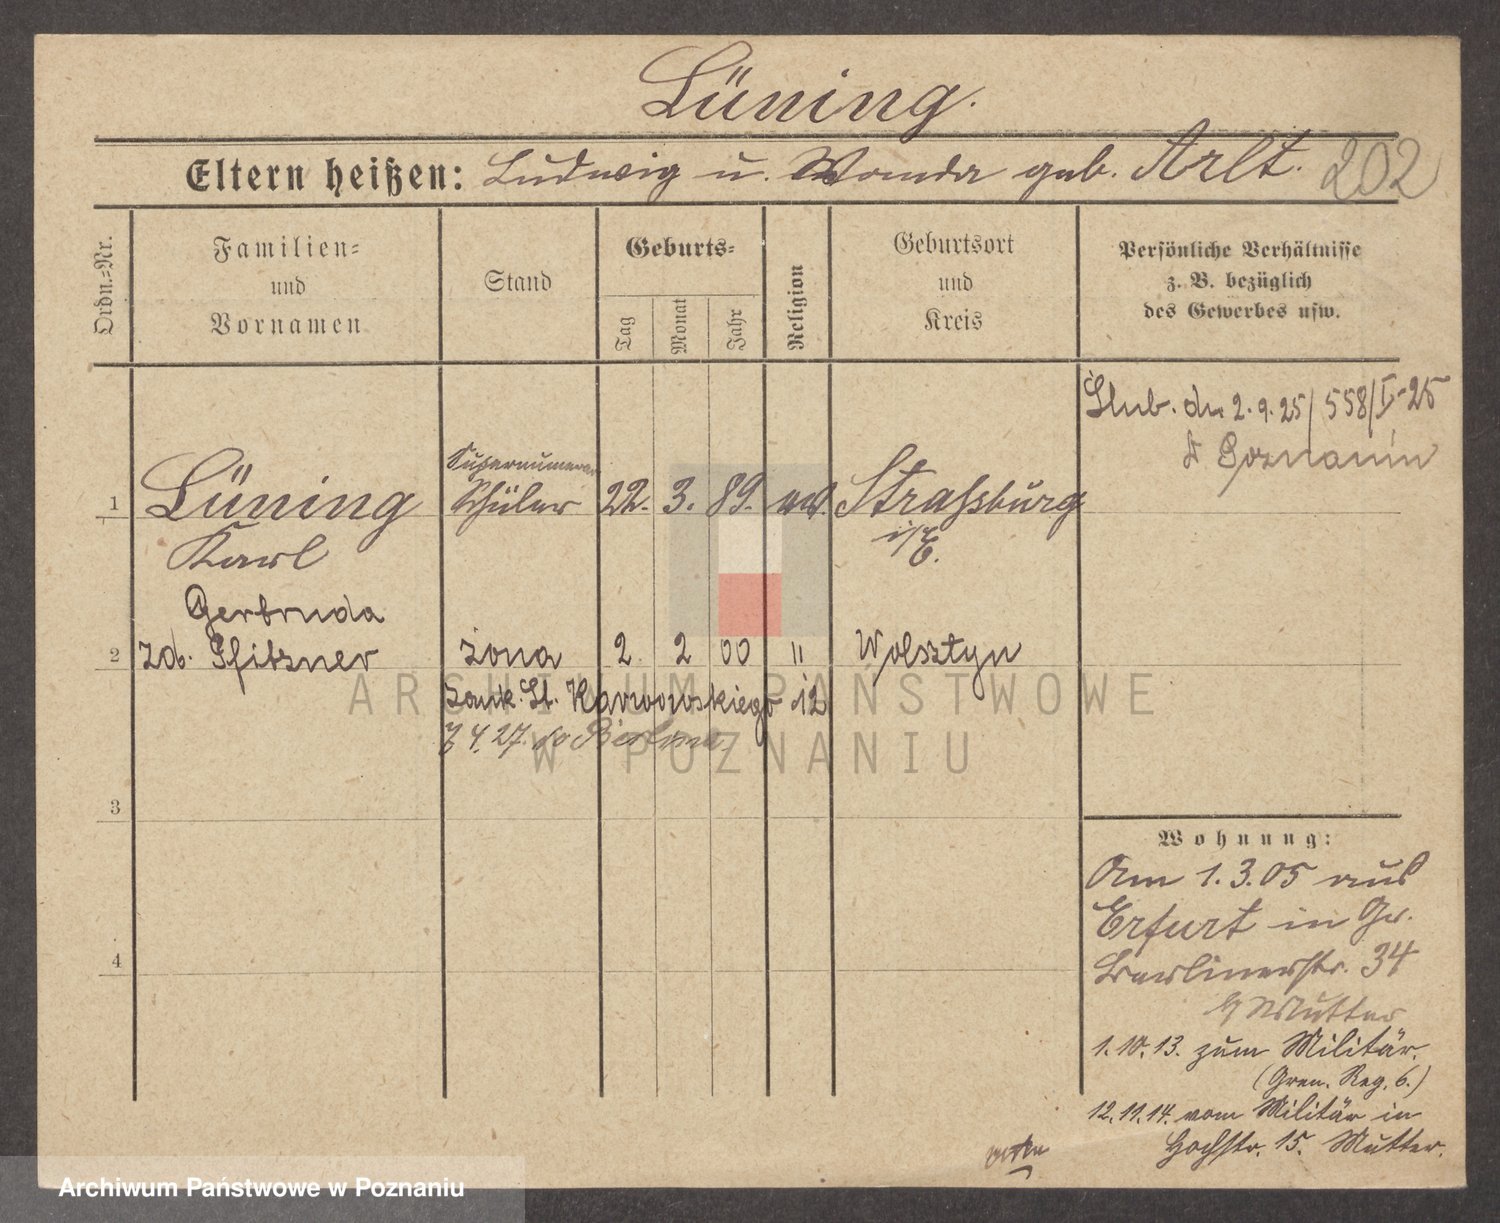 Lüning.
Eltern heißen: Ludwig u. Wanda geb. Arlt. 202
Ordn.=Nr.
Familien=
und
Vornamen
Stand
Geburts=
Tag
Monat
Jahr
Religion
Geburtsort
und
Kreis
Persönliche Verhältnisse
z. B. bezüglich
des Gewerbes usw.
Ślub. dn 2.9.25/558/V-25
Poznaniu
Supernumerar
1 Lüning Schüler 22. 3. 89. ev. Strassburg
Karl i/E.
Gertruda
2 zd. Pfitzner żona 2 2 00 " Wolsztyn
Zamk. St. Karwowskiego 12
7 4. 27. do Berlina
3
4
Wohnung:
Am 1.3.05 aus
Erfurt in Gr.
Berlinerstr. 34
b/ Mutter
1.10.13. zum Militär.
(Gren. Reg. 6.)
12.11.14. vom Militär in
Hochstr. 15. Mutter.
ARCHIWUM PAŃSTWOWE
W POZNANIU
Archiwum Państwowe w Poznaniu